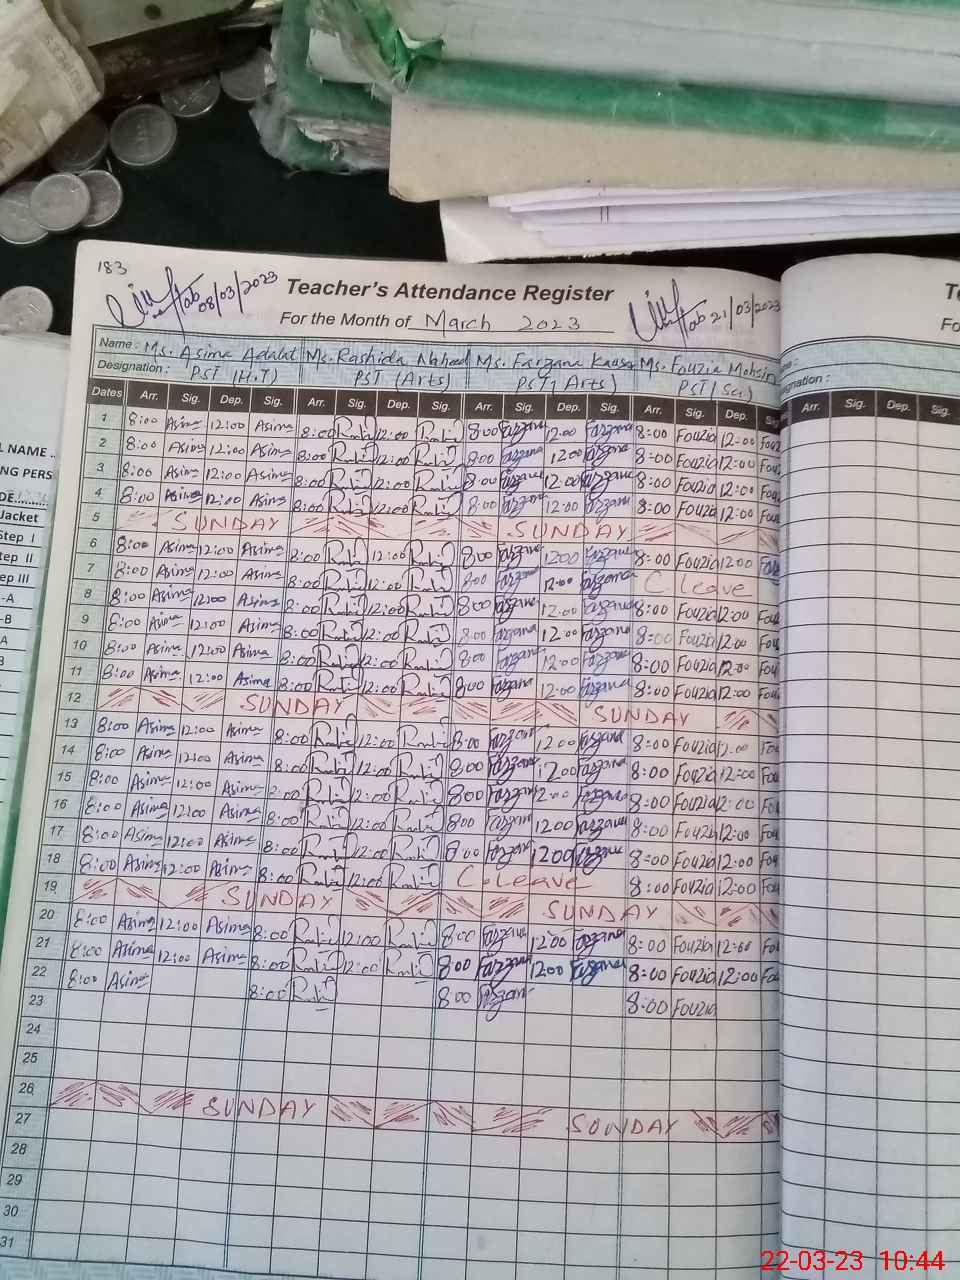 183
08/03/2023
Teacher's Attendance Register
21/03/2023
For the Month of March 2023
Name : Ms. Asima Adalat Ms. Rashida Naheed Ms. Farzana Kausa Ms. Fouzia Mohsin
Designation : PST (H.T) PST (Arts) PST( Arts) PST( Sci)
Dates Arr. Sig. Dep. Sig. Arr. Sig. Dep. Sig. Arr. Sig. Dep. Sig. Arr. Sig. Dep. Sig
1 8:00 Asima 12:00 Asima 8:00 12:00 8:00 Farzana 12:00 Farzana 8:00 Fouzia 12:00 Fouz
2 8:00 Asima 12:00 Asima 8:00 12:00 8:00 Farzana 12:00 Farzana 8:00 Fouzia 12:00 Fou
3 8:00 Asima 12:00 Asima 8:00 12:00 8:00 Farzana 12:00 Farzana 8:00 Fouzia 12:00 Fou
4 8:00 Asima 12:00 Asima 8:00 12:00 8:00 Farzana 12:00 Farzana 8:00 Fouzia 12:00 Fou
5 SUNDAY SUNDAY
6 8:00 Asima 12:00 Asima 8:00 12:00 8:00 Farzana 12:00 Farzana 8:00 Fouzia 12:00 Fou
7 8:00 Asima 12:00 Asima 8:00 12:00 8:00 Farzana 12:00 Farzana C. Leave
8 8:00 Asima 12:00 Asima 8:00 12:00 8:00 Farzana 12:00 Farzana 8:00 Fouzia 12:00 Fou
9 8:00 Asima 12:00 Asima 8:00 12:00 8:00 Farzana 12:00 Farzana 8:00 Fouzia 12:00 Fou
10 8:00 Asima 12:00 Asima 8:00 12:00 8:00 Farzana 12:00 Farzana 8:00 Fouzia 12:00 Fou
11 8:00 Asima 12:00 Asima 8:00 12:00 8:00 Farzana 12:00 Farzana 8:00 Fouzia 12:00 Fou
12 SUNDAY SUNDAY
13 8:00 Asima 12:00 Asima 8:00 12:00 8:00 Farzana 12:00 Farzana 8:00 Fouzia 12:00 Fou
14 8:00 Asima 12:00 Asima 8:00 12:00 8:00 Farzana 12:00 Farzana 8:00 Fouzia 12:00 Fou
15 8:00 Asima 12:00 Asima 8:00 12:00 8:00 Farzana 12:00 Farzana 8:00 Fouzia 12:00 Fou
16 8:00 Asima 12:00 Asima 8:00 12:00 8:00 Farzana 12:00 Farzana 8:00 Fouzia 12:00 Fou
17 8:00 Asima 12:00 Asima 8:00 12:00 8:00 Farzana 12:00 Farzana 8:00 Fouzia 12:00 Fou
18 8:00 Asima 12:00 Asima 8:00 12:00 C. Leave 8:00 Fouzia 12:00 Fou
19 SUNDAY SUNDAY
20 8:00 Asima 12:00 Asima 8:00 12:00 8:00 Farzana 12:00 Farzana 8:00 Fouzia 12:00 Fou
21 8:00 Asima 12:00 Asima 8:00 12:00 8:00 Farzana 12:00 Farzana 8:00 Fouzia 12:00 Fou
22 8:00 Asima 8:00 8:00 Farzana 8:00 Fouzia
23
24
25
26 SUNDAY SUNDAY
27
28
29
30
31
L NAME
NG PERS
DE
Jacket
Step I
ep II
ep III
-A
-B
A
B
Te
Fo
ignation :
Arr. Sig. Dep. Sig.
22-03-23 10:44